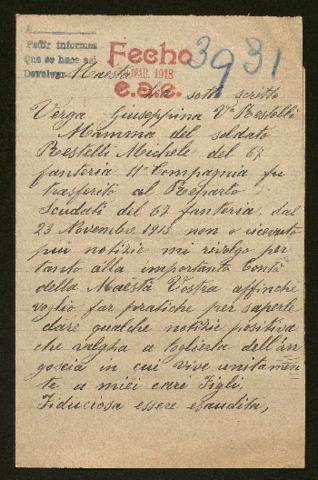 Pedir informes
Que se hace así
Devolver
Fecho
MAR. 1918
e.a.e.
3931
Maestà
La sotto scritta
Verga Giuseppina Vª Restelli
Mamma del soldato
Restelli Michele del 67
fanteria 11ª Compagnia fu
trasferito al Reparto
Scudati del 67 fanteria, dal
23 Novembre 1915 non o ricevuto
più notizie mi rivolgo per
tanto alla importante bontà
della Maestà Vostra affinchè
voglio far pratiche per saperle
dare qualche notizie positiva
che valgha a toglierla dell'an
goscia in cui vive unitamen
te a miei cari figli,
Fiduciosa essere esaudita,